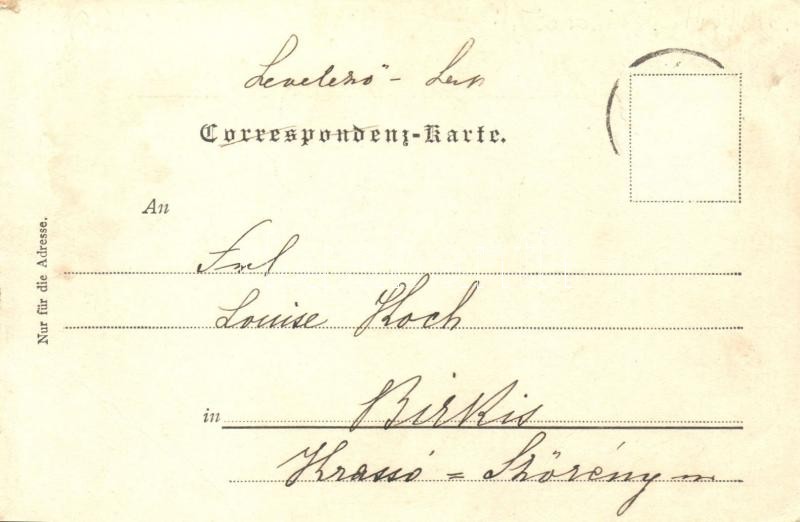 Levelező - Lap
Correspondenz-Karte.
An
Frl
Louise Koch
in Birkis
Krassó = Szörény m
Nur für die Adresse.